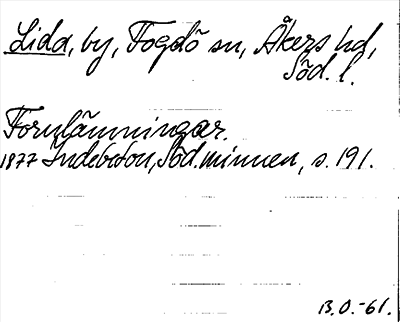 Lida, by, Fogdö sn, Åkers hd,
Söd. l.
Fornlämningar.
1877 Indebetou, Söd. minnen, s. 191.
B.O.-61.